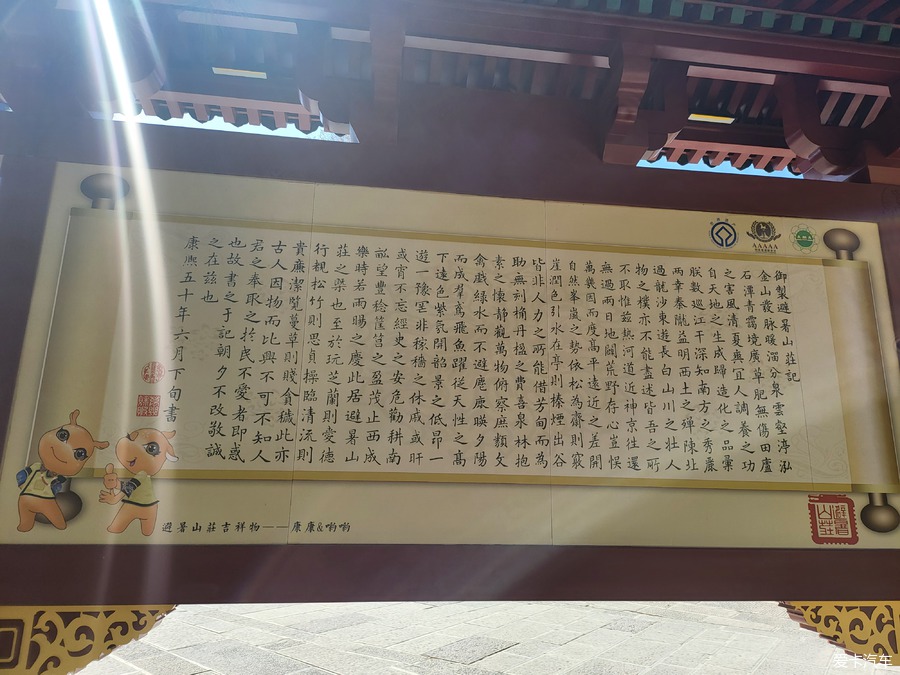 御製避暑山莊記
金山發脈暖溜分泉雲壑渟泓
石潭青靄境廣草肥無傷田廬
之害風清夏爽宜人調養之功
自天地之生成歸造化之品彙
朕數巡江干深知南方之秀麗
兩幸秦隴益明西土之殫陳北
過龍沙東遊長白山川之壯人
物之樸亦不能盡述皆吾之所
不取惟茲熱河道近神京往還
無過兩日地闢荒野存心豈悞
萬幾因而度高平遠近之差開
自然峯嵐之勢依松為齋則竅
崖潤色引水在亭則榛煙出谷
皆非人力之所能借芳甸而為
助無刻桷丹楹之費喜泉林抱
素之懷靜觀萬物俯察庶類文
禽戲綠水而不避麀鹿暎夕陽
而成羣鳶飛魚躍從天性之高
下遠色紫氛開韶景之低昂一
遊一豫罔非稼穡之休戚或旰
或宵不忘經史之安危勸耕南
畝望豐稔筐筥之盈茂止西成
樂時若雨暘之慶此居避暑山
莊之槩也至於玩芝蘭則愛德
行覩松竹則思貞操臨清流則
貴廉潔覽蔓草則賤貪穢此亦
古人因物而比興不可不知人
君之奉取之於民不愛者即惑
也故書之于記朝夕不改敬誠
之在茲也
康熙五十年六月下旬書
AAAAA
避暑山莊
避暑山莊吉祥物——康康&喲喲
爱卡汽车